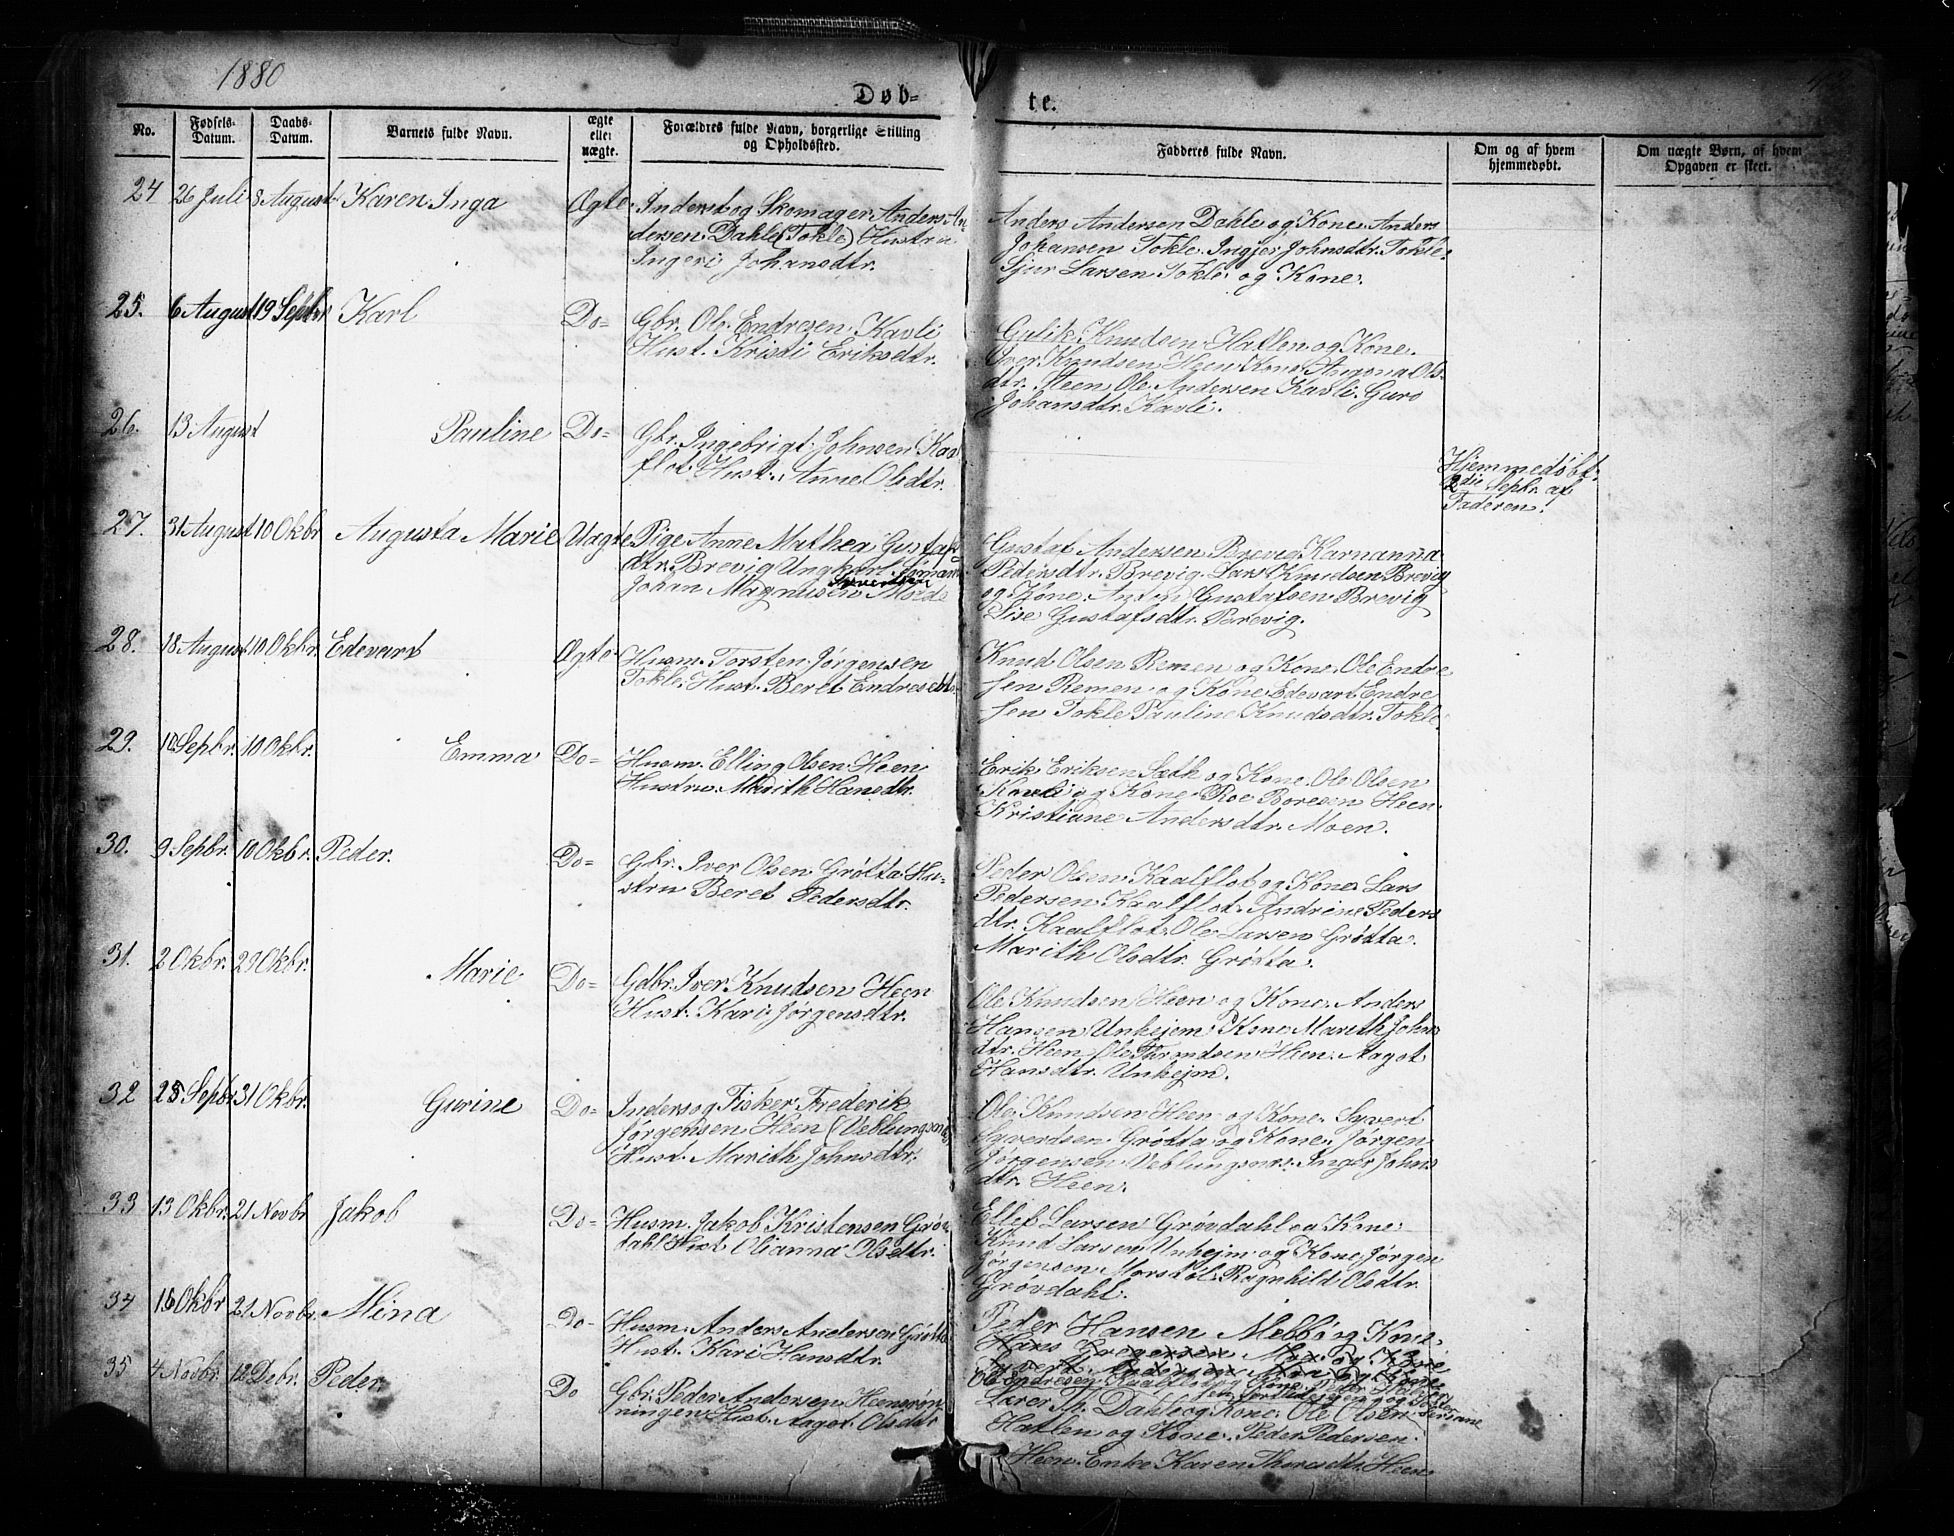 1880
Døb-
te.
No.
Fødsels-
Datum.
Daabs-
Datum.
Barnets fulde Navn.
ægte
eller
uægte.
Forældres fulde Navn, borgerlige Stilling
og Opholdssted.
Fadderes fulde Navn.
Om og af hvem
hjemmedøbt.
Om uægte Børn, af hvem
Opgaven er skeet.
24 26 Juli 8 August Karen Inga Ægte Inderst og Skomager Anders An
dersen Dahle (Tokle) Hustru
Ingeri Johansdtr.
Anders Andersen Dahle og Kone Anders
Johansen Tokle. Ingjer Johnsdtr. Tokle.
Sjur Larsen Tokle og Kone.
25. 6 August 19 Septbr Karl Do= Gbr. Ole Endresen Kavli
Hust. Kristi Eriksdtr.
Gulik Knudsen Hatlen og Kone.
Iver Knudsen Heen Kone Ols
dtr. Heen Ole Andersen Kavli. Guro
Johansdtr. Kavli.
26. 13 August Pauline Do= Gbr. Ingebrigt Johnsen Kaa
flot Hust. Anne Olsdtr.
Hjemmedøbt
2den Sepbr. af
Faderen.
27. 31 August 10 Okbr Augusta Marie Uægte Pige Anne Mathea Gustaf
dtr. Brevig Ungkarl
Johan Magnus Syvertsen Molde
Gustaf Andersen Brevig Karnanna
Pedersdtr. Brevig. Lars Knudsen Brevig
og Kone Anton Gustafsen Brevig
Lise Gustafsdtr. Brevig.
28. 18 August 10 Okbr. Edevart Ægte Husm. Torsten Jørgensen
Tokle. Hust. Beret Endresdtr.
Knud Olsen Remen og Kone Ole Endre
sen Remen og Kone Edevart Endre
sen Tokle Pauline Knudsdtr. Tokle
29. 10 Sepbr. 10 Okbr. Emma Do= Husm. Elling Olsen Heen
Hustru Marith Hansdtr.
Erik Eriksen Sæth og Kone Ole Olsen
Kavli og Kone Roe Boresen Heen
Kristiane Andersdtr. Moen.
30. 9 Sepbr. 10 Okbr. Peder. Do= Gbr. Iver Olsen Grøtta Hu-
stru Beret Pedersdtr.
Peder Olsen Kaalflot og Kone Lars
Pedersen Kaalflot. Andrine Peders
dtr. Kaalflot. Ole Larsen Grøtta.
Marith Olsdtr. Grøtta.
31. 2 Okbr. 29 Okbr. Marie Do= Gdbr. Iver Knudsen Heen
Hust. Kari Jørgensdtr.
Ole Knudsen Heen og Kone. Anders
Hansen Unhejem Kone Marith Johns
dtr. Heen Ole Trondsen Heen. Aagot
Hansdtr. Unhejm.
32 25 Sepbr 31 Okbr. Gurine Do= Inders og Fisker Frederik
Jørgensen Heen (Veblungsnes)
Hust. Marith Johnsdtr.
Ole Knudsen Heen og Kone. Syvert
Syvertsen Grøtta og Kone. Jørgen
Jørgensen Veblungsnes. Inger Johns
dtr. Heen.
33 13 Okbr. 21 Novbr Jakob Do= Husm. Jakob Kristensen Grøv
dahl Hust. Olianna Olsdtr.
Ellef Larsen Grøvdahl og Kone
Knud Larsen Unhejm og Kone Jørgen
Jørgensen Morstøl Ragnhild Olsdtr.
Grøvdahl.
34 18 Okbr 21 Novbr. Mina Do= Husm. Anders Andersen Grøtta
Hust. Kari Hansdtr.
Peder Hansen Melbø og Kone.
35 4 Novbr. 12 Debr. Peder Do Gbr. Peder Andersen Heensgrøn
ningen Hust. Aagot Olsdtr
Larer Th. Dahle og Kone. Ole Olsen
Hatlen og Kone. Peder Pedersen
Heen. Enke Karen Thoresdtr. Heen